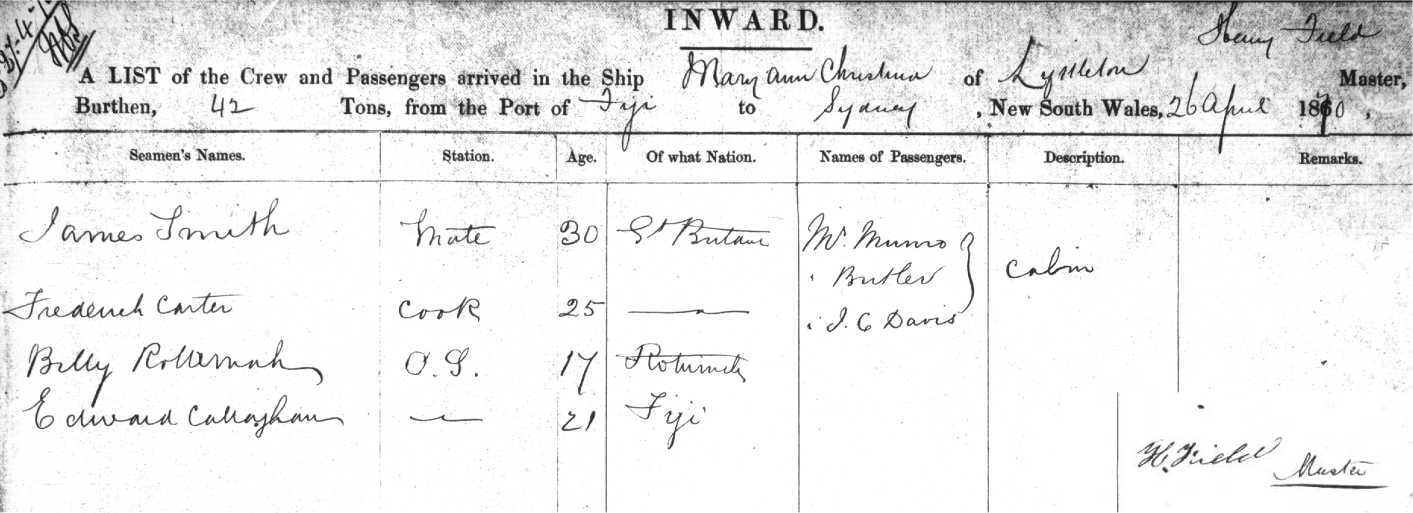 27.4.
INWARD.
Henry Field
A LIST of the Crew and Passengers arrived in the Ship Mary Ann Christina of Lyttleton Master,
Burthen, 42 Tons, from the Port of Fiji to Sydney, New South Wales, 26 April 1870,
Seamen's Names. Station. Age. Of what Nation. Names of Passengers. Description. Remarks.
James Smith Mate 30 Gt Britain Mr. Munro
" Butler } Cabin
Frederick Carter Cook 25 — " J. C Davis
Billy Rottumah O.S. 17 Rotumah
Edward Callaghan — 21 Fiji
H. Field Master